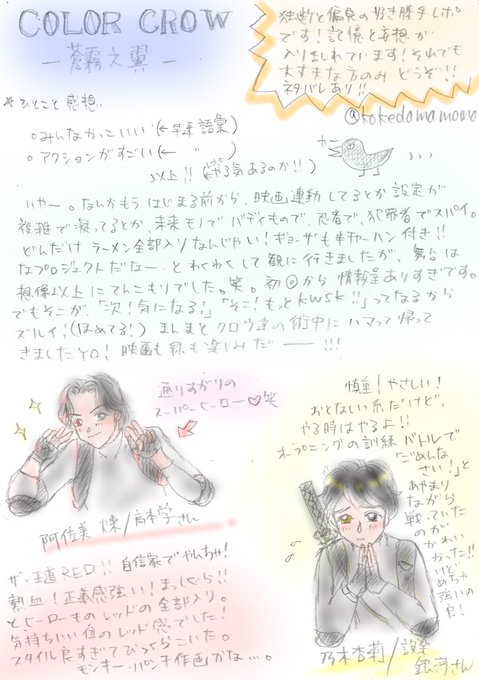 COLOR CROW
― 蒼霧之翼 ―
独断と偏見の好き勝手レポ
です！記憶と妄想が
入り乱れています！それでも
大丈夫な方のみ どうぞ!!
ネタバレあり!!
@kokedamamama
*ひとこと感想..
。みんなかっこいい（←早速 語彙）
。アクションがすごい（← 〃 ）
以上!!（やる気あるのか!!）
カー
いやー。なんかもう はじまる前から、映画連動してるとか設定が
複雑で凝ってるとか、未来モノでバディもので、忍者で、犯罪者でスパイ。
どんだけ ラーメン全部入りなんやい！ギョーザも半チャーハン付き!!
なプロジェクトだなー、とわくわくして観に行きましたが、舞台は
想像以上にてんこもりでした。笑。初回から 情報量ありすぎです。
でもそこが、「次！気になる！」「そこ！もっとkwsk!!」ってなるから
ズルイ！(ほめてる！) まんまとクロウ達の術中にハマって帰って
きましたYO！映画も観る楽しみだ――!!!
通りすがりの
スーパーヒーロー♡笑
阿佐美 煉/高本学さん
ザ・王道RED!! 自信家でやんちゃ！
熱血！正義感強い！まっしぐら!!
とヒーローものレッドの全部入り。
気持ちいい位のレッド感でした！
スタイル良すぎてびっくらこいた。
モンキー・パンチ作画かな…。
慎重！やさしい！
おとなしい系だけど、
やる時はやるよ!!
オープニングの訓練バトルで
「ごめんな
さい！」と
あやまり
ながら
戦っていた
のが
かわい
かった!!
けど
めちゃ
強いの
良！
乃木杏莉/設楽
銀河さん